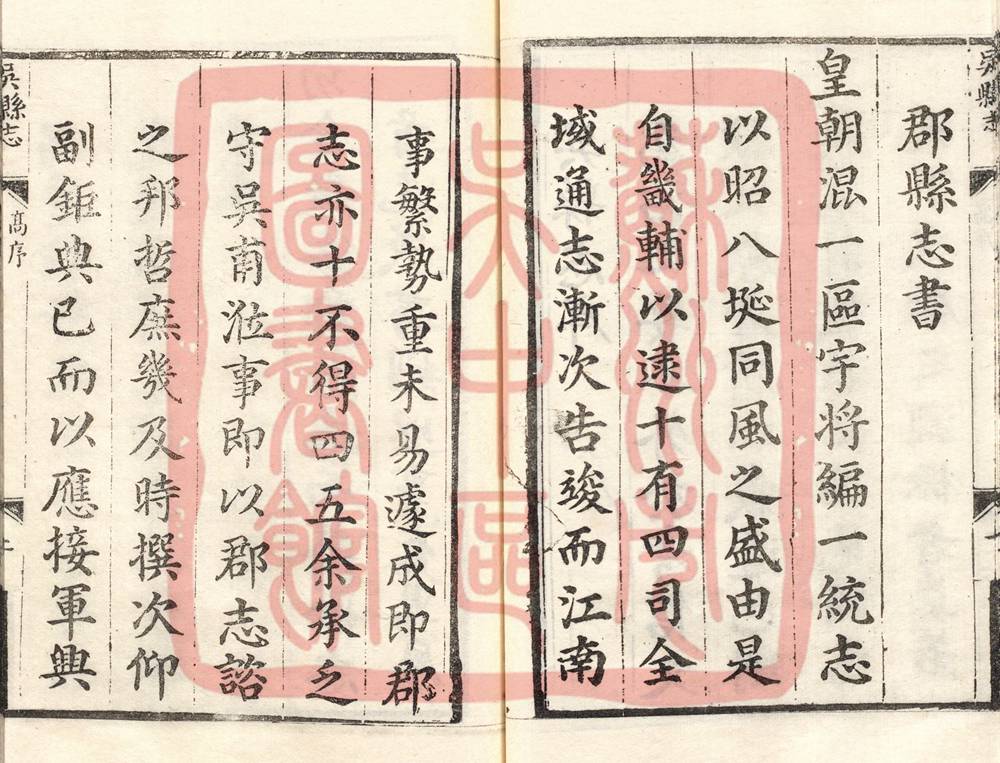 郡縣志書
皇朝混一區宇將編一統志
以昭八埏同風之盛由是
自畿輔以逮十有四司全
域通志漸次告竣而江南
事繁勢重未易遽成即郡
志亦十不得四五余承乏
守吳甫涖事即以郡志諮
之邦哲庶幾及時撰次仰
副鉅典已而以應接軍興
吳縣志
高序
吳縣志
蘇州市
吳中區
圖書館